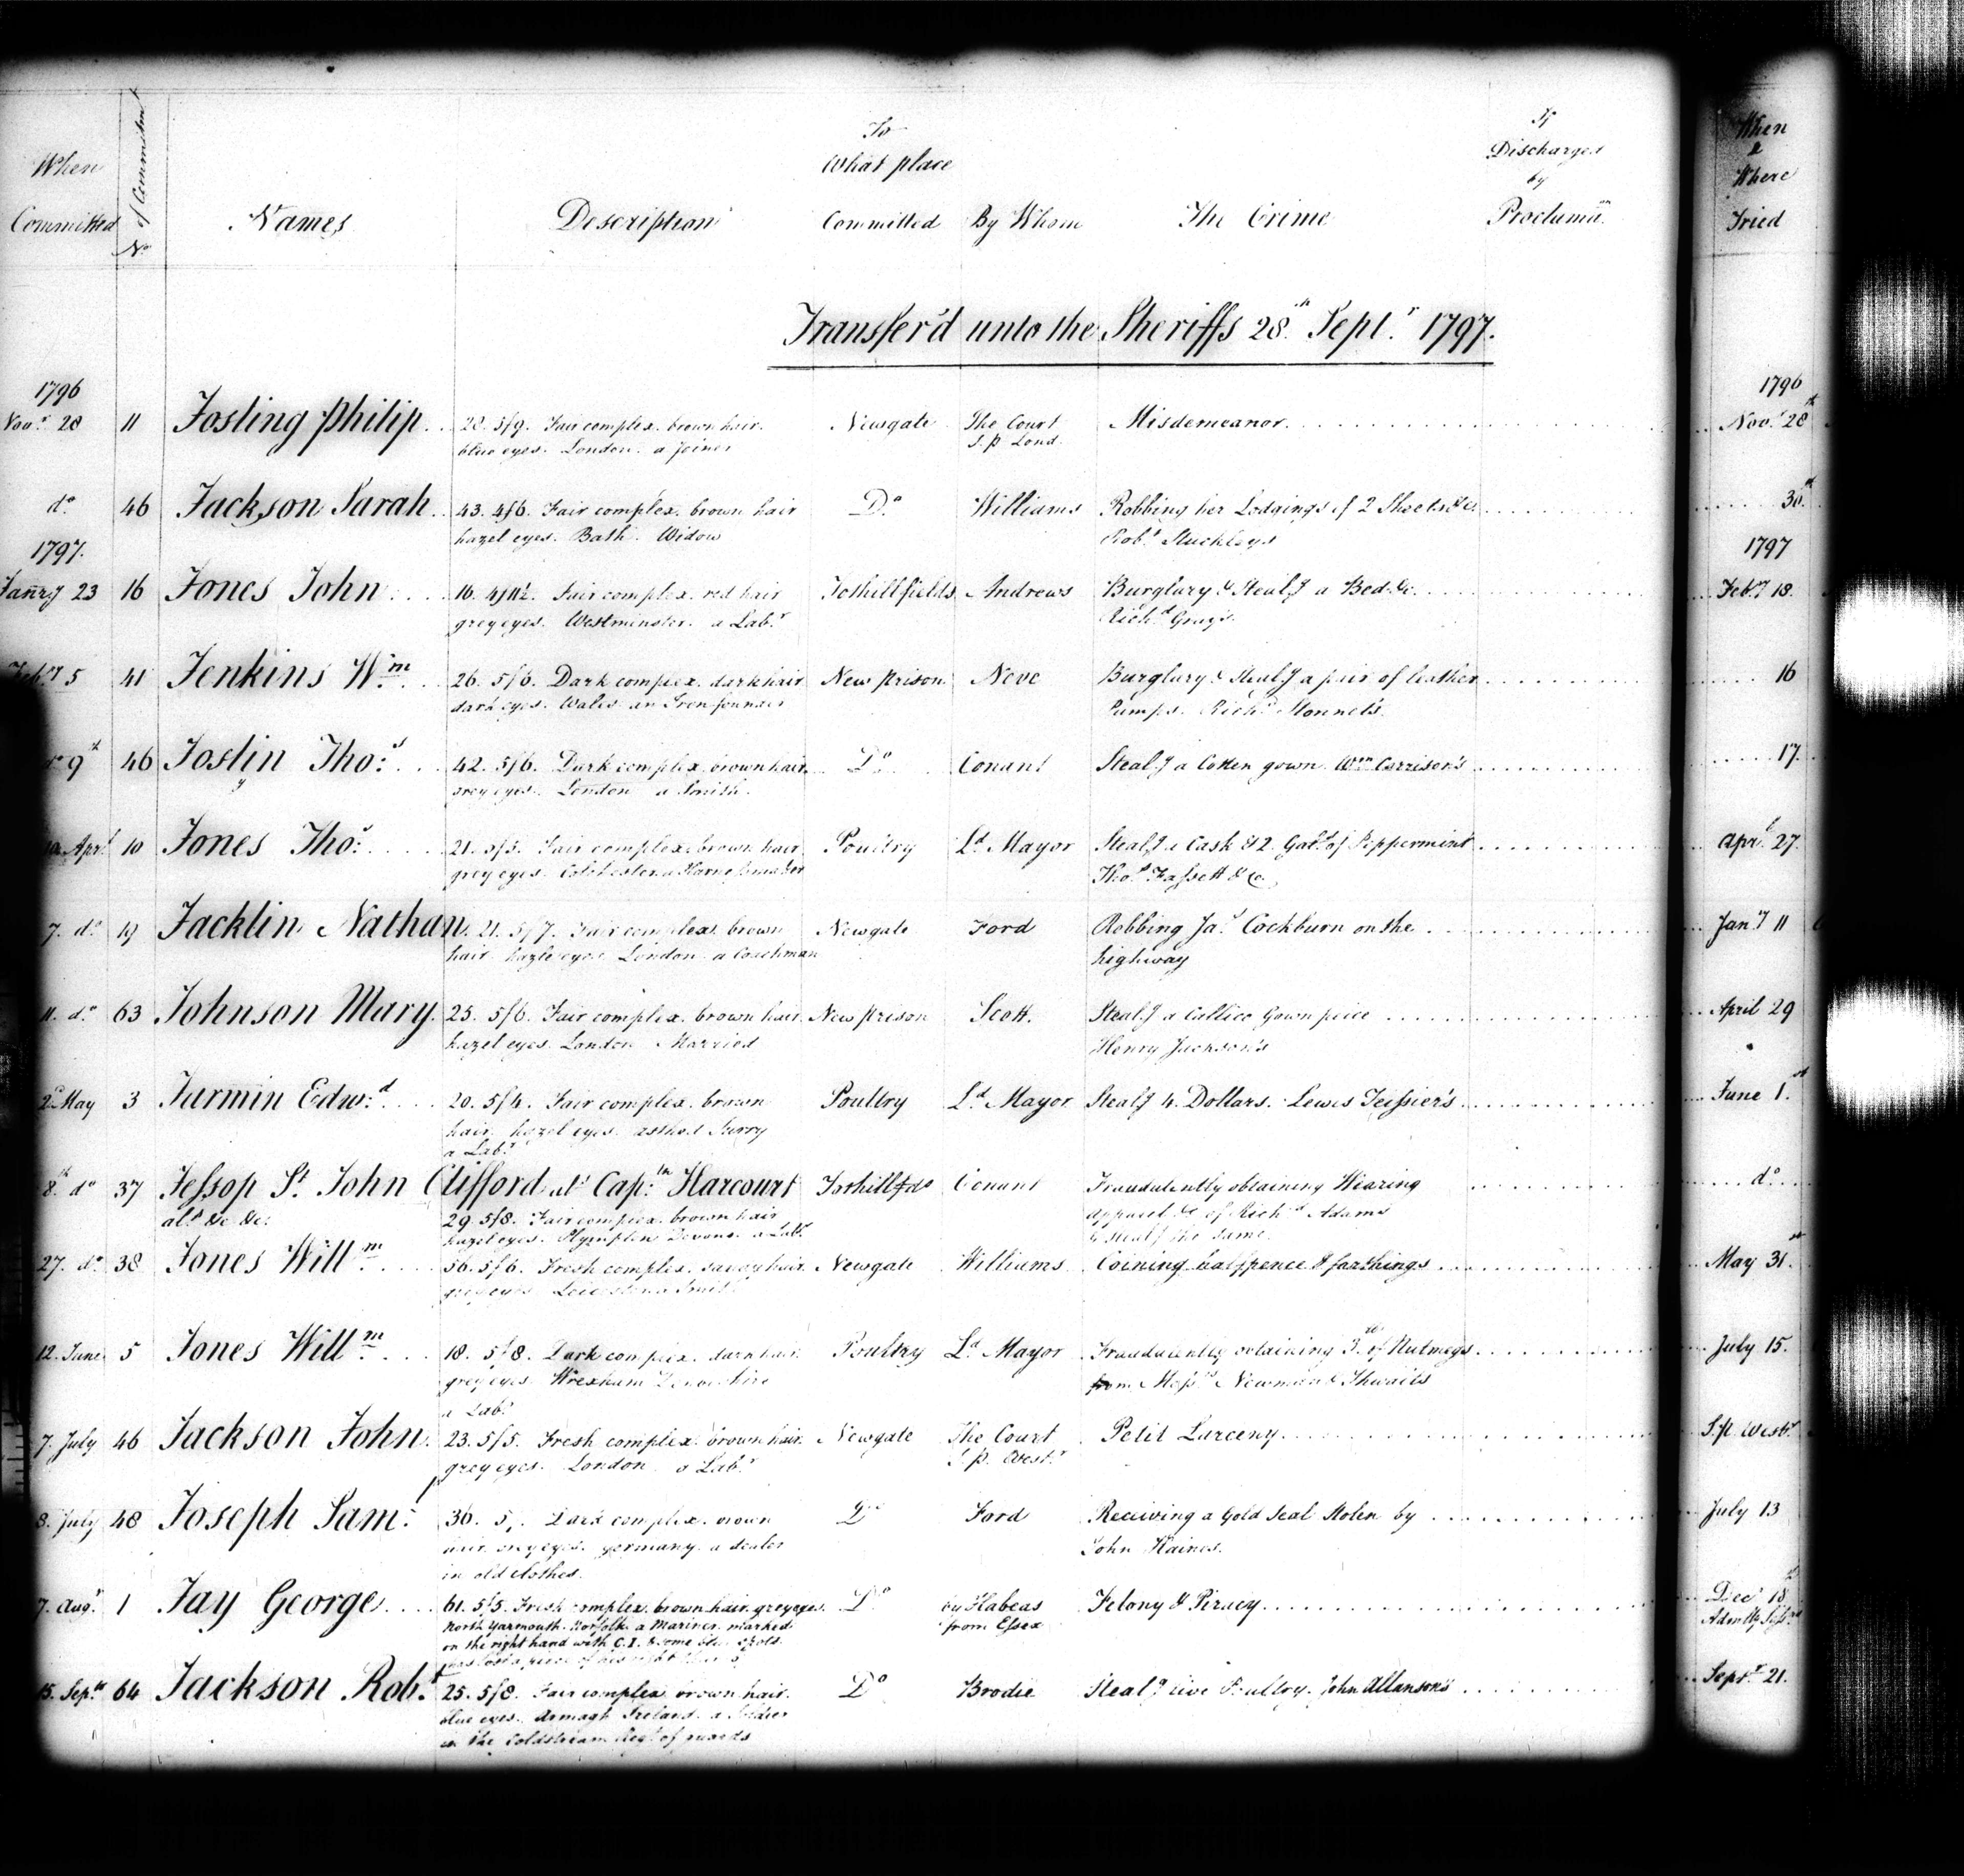 When
Committed
No. of Commitmt
Names
Description
To
What place
Committed
By Whom
The Crime
If
Discharged
by
Proclama.n
When
&
Where
Tried
Transfer'd unto the Sheriffs 28th Septr. 1797.
1796 1796
Novr. 28 11 Josling Philip 5/9. Fair complex. brown hair. Newgate The Court Misdemeanor Novr. 28th
blue eyes. London. a Joiner S. P. Lond.
do 46 Jackson Sarah 43. 4/6. Fair complex. brown hair Do Williams Robbing her Lodgings of 2 Sheets &c. 30th
hazel eyes. Bath. Widow Robt. Stuckleys
1797. 1797
Janry 23 16 Jones John 16. 4/11½. Fair complex. red hair Tothillfields Andrews Burglary & Steal.g a Bed &c. Feb.y 18.
grey eyes. Westminster. a Labr. Richd. Gray's.
Feb.y 5 41 Jenkins Wm. 26. 5/6. Dark complex. dark hair New prison Neve Burglary & Steal.g a pair of leather 16
dark eyes. Wales an Iron founder Pumps. Richd.
do 9th 46 Joslin Thos. 42. 5/6. Dark complex. brown hair. Do Conant Steal.g a Cotten gown. Wm 17.
grey eyes. London a Smith.
Aprl 10 Jones Thos. 21. 5/5. Fair complex. brown hair Poultry Ld. Mayor Steal.g a Cask & 2 Galls. of Peppermint Aprl. 27.
grey eyes. Colchester a Harnessmaker Thos. Fassett & Co.
7. do 19 Jacklin Nathan. 21. 5/7. Fair complex. brown Newgate Ford Robbing Jas. Cockburn on the Jan.y 11
hair. hazle eyes. London. a Coachman highway
11. do 63 Johnson Mary. 25. 5/6. Fair complex. brown hair New prison Scott. Steal.g a Callico Gown peice April 29
hazel eyes. London. Married Henry Jackson's
2d May 3 Jarmin Edwd. 20. 5/4. Fair complex. brown Poultry Ld. Mayor Steal.g 4. Dollars. Lewis Teissier's June 1st
hair. hazel eyes. Surry
a Labr.
8th do 37 Jessop St. John Clifford als Capt.n Harcourt Tothillfds Conant Fraudulently obtaining Wearing do
als &c &c. 29. 5/8. Fair complex. brown hair apparel &c of Richd Adams
hazel eyes. Plympton Devons. a Labr. & Steal.g the same.
27. do 38 Jones Willm. 56. 5/6. Fresh complex. hair Newgate Williams Coining halfpence & farthings May 31st
grey eyes.
12. June 5 Jones Willm. 18. 5/8. Dark complex. dark hair. Poultry Ld. Mayor Fraudulently obtaining 3lb of Nutmegs July 15.
grey eyes. Wrexham from Messrs. Newman & Thwaits
a Labr.
7. July 46 Jackson John. 23. 5/5. Fresh complex. brown hair. Newgate The Court Petit Larceny S. p. Westr.
grey eyes. London. a Labr. S. p. Westr.
8. July 48 Joseph Saml. 36. 5/. Dark complex. brown Do Ford Receiving a Gold Seal Stolen by July 13
hair. grey eyes. Germany. a dealer John Haines.
in old clothes.
7. Augt. 1 Jay George 61. 5/5. Fresh complex. brown hair. grey eyes. Do by Habeas Felony & Piracy Decr 18th
North Yarmouth. Norfolk. a Mariner. marked from Essex Adm.ty Sess.ns
on the right hand with C. I. & some
has lost a piece of his right
15. Septr 64 Jackson Robt. 25. 5/8. Fair complex. brown hair. Do Brodie Steal.g live Poultry. John Allanson's Septr. 21.
blue eyes. Armagh Ireland. a Soldier
in the Coldstream Regt. of Guards